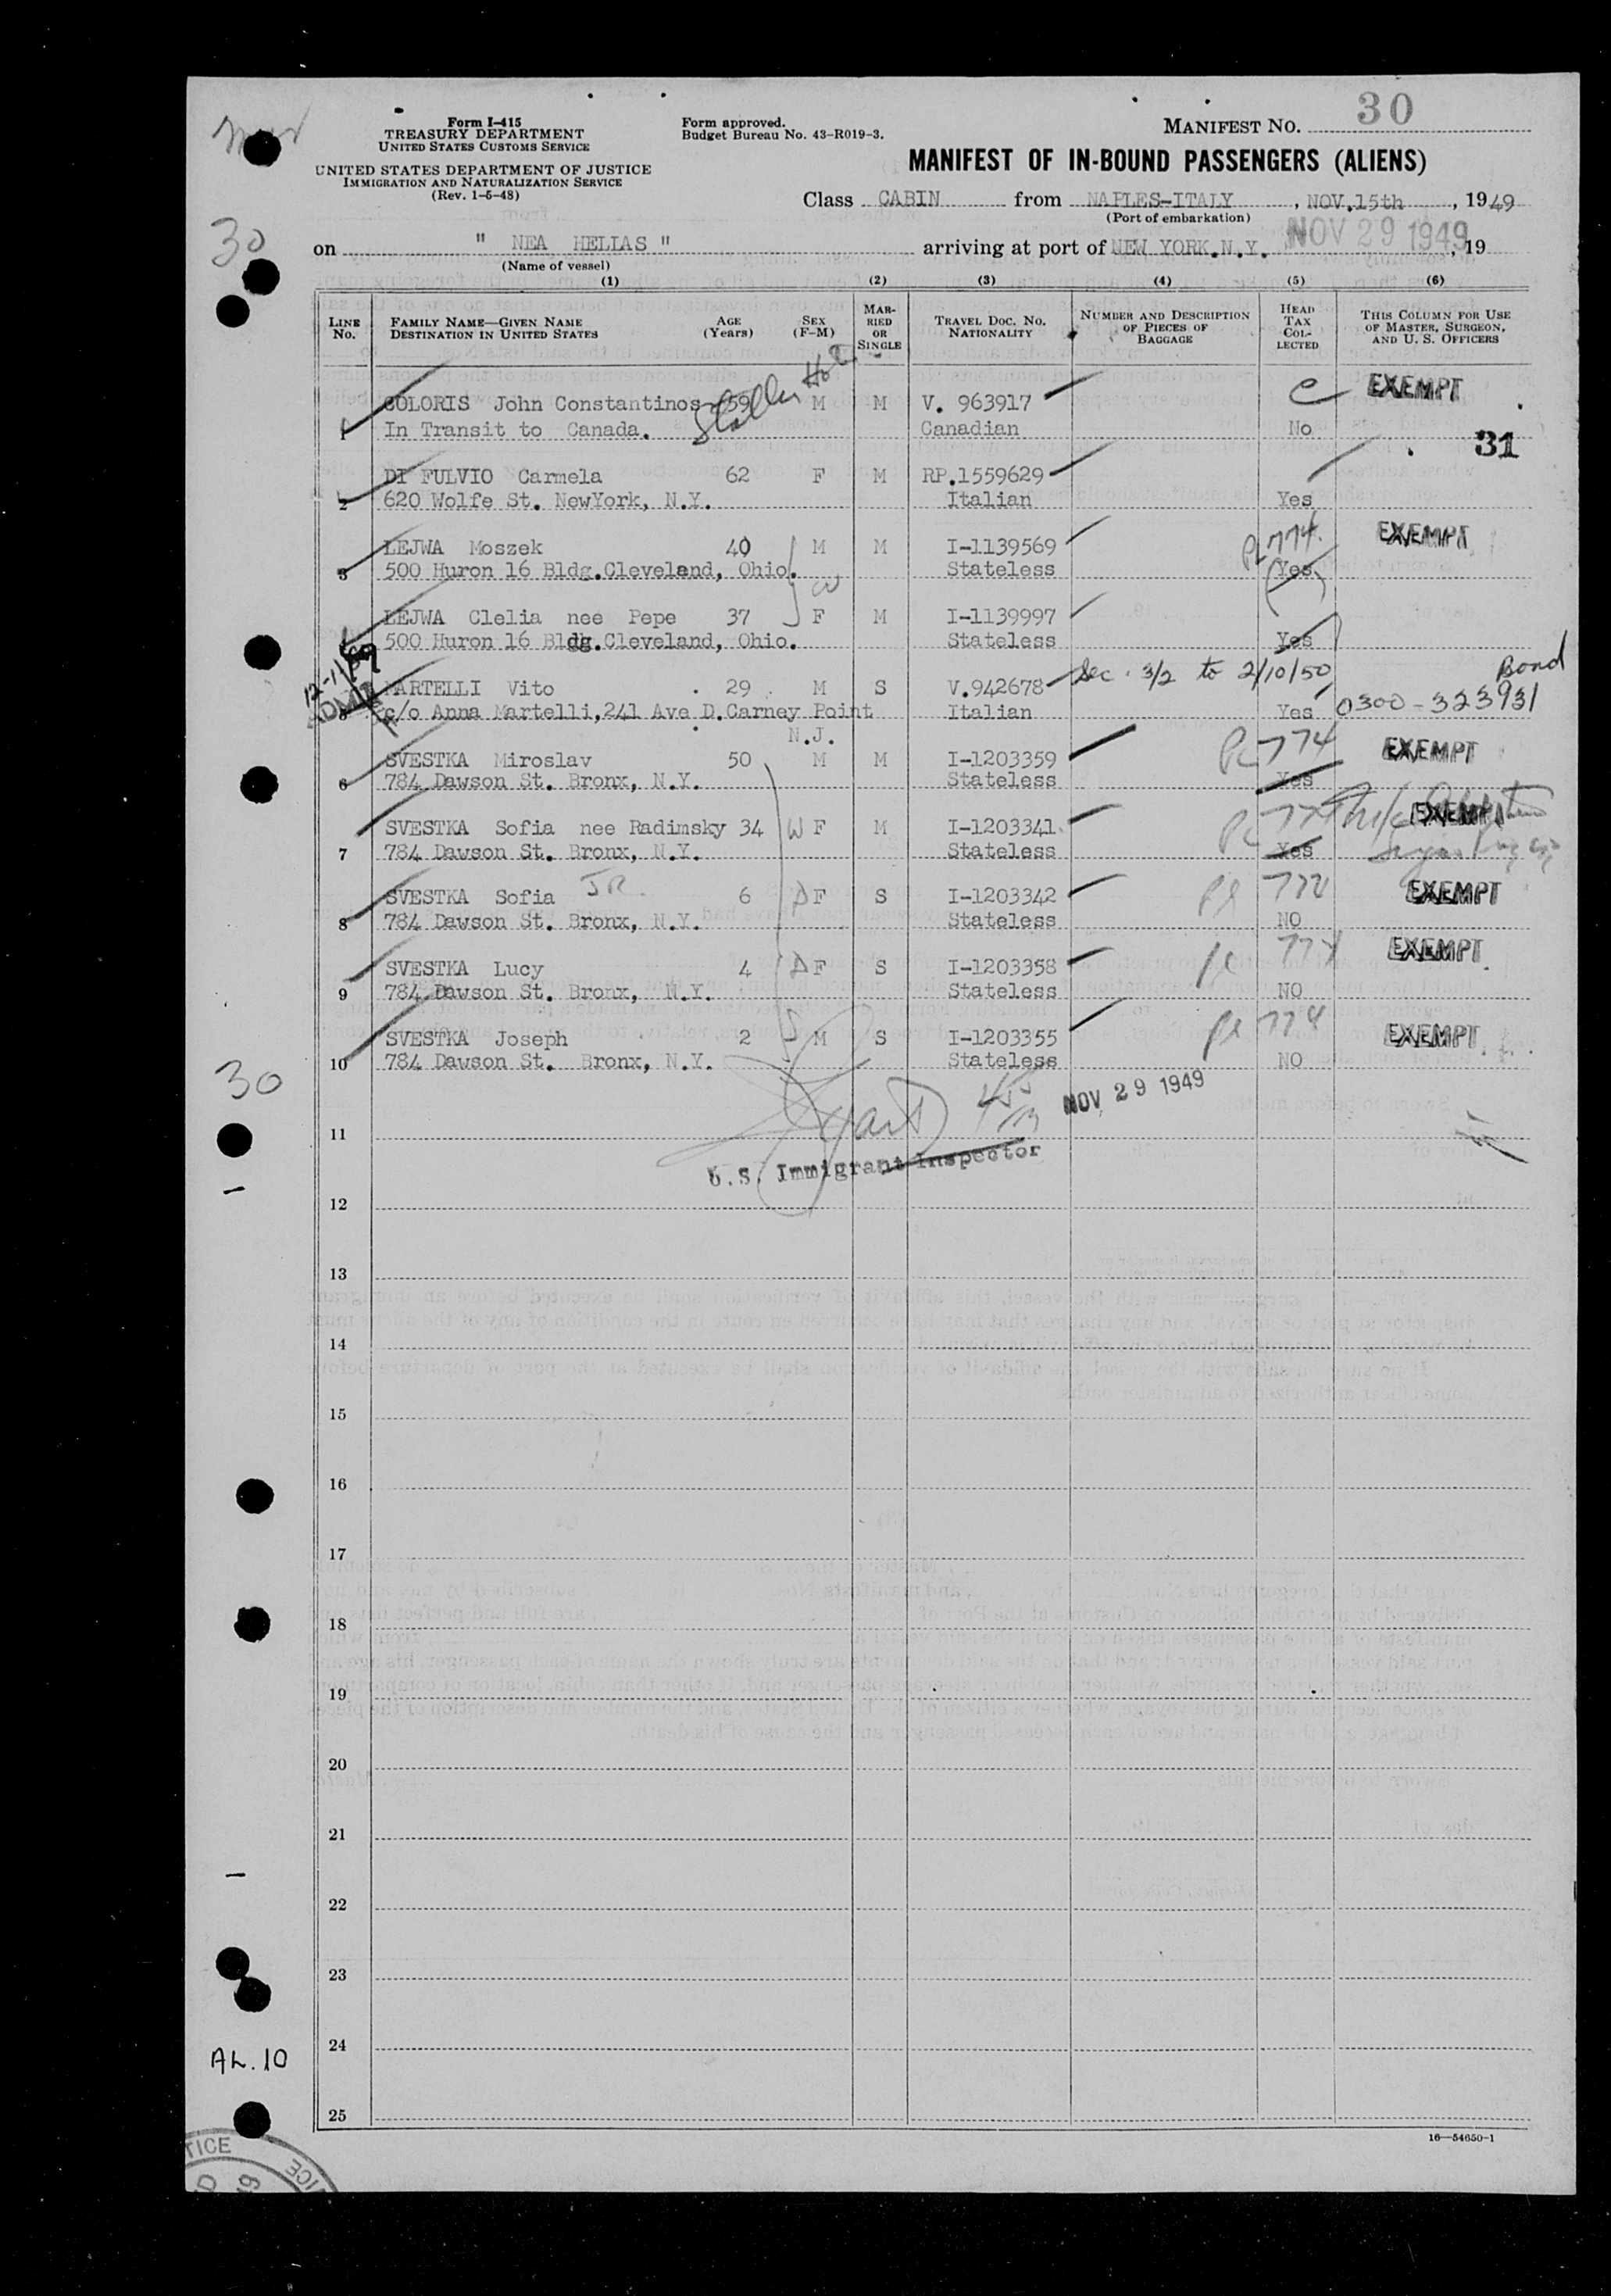 Form I-415
TREASURY DEPARTMENT
UNITED STATES CUSTOMS SERVICE
UNITED STATES DEPARTMENT OF JUSTICE
IMMIGRATION AND NATURALIZATION SERVICE
(Rev. 1-5-48)
Form approved.
Budget Bureau No. 43-R019-3.
MANIFEST NO. 30
MANIFEST OF IN-BOUND PASSENGERS (ALIENS)
Class CABIN from NAPLES-ITALY, NOV.15th, 1949
(Port of embarkation)
30
on " NEA HELLAS " arriving at port of NEW YORK.N.Y. NOV 29 1949, 19
(Name of vessel)
(1) (2) (3) (4) (5) (6)
LINE No. FAMILY NAME—GIVEN NAME DESTINATION IN UNITED STATES AGE (Years) SEX (F-M) MARRIED OR SINGLE TRAVEL DOC. NO. NATIONALITY NUMBER AND DESCRIPTION OF PIECES OF BAGGAGE HEAD TAX COLLECTED THIS COLUMN FOR USE OF MASTER, SURGEON, AND U. S. OFFICERS
COLORIS John Constantinos 59 M M V. 963917 EXEMPT
1 In Transit to Canada. Canadian No
31
DI FULVIO Carmela 62 F M RP.1559629
2 620 Wolfe St. NewYork, N.Y. Italian Yes
LEJWA Moszek 40 M M I-1139569 774 EXEMPT
3 500 Huron 16 Bldg.Cleveland, Ohio. Stateless Yes
LEJWA Clelia nee Pepe 37 F M I-1139997
500 Huron 16 Bldg.Cleveland, Ohio. Stateless Yes
MARTELLI Vito 29 M S V.942678 Sec. 3/2 to 2/10/50 Bond
5 c/o Anna Martelli,241 Ave D.Carney Point Italian Yes 0300-323931
N.J.
SVESTKA Miroslav 50 M M I-1203359 774 EXEMPT
6 784 Dawson St. Bronx, N.Y. Stateless Yes
SVESTKA Sofia nee Radimsky 34 W F M I-1203341 EXEMPT
7 784 Dawson St. Bronx, N.Y. Stateless Yes
SVESTKA Sofia JR. 6 D F S I-1203342 EXEMPT
8 784 Dawson St. Bronx, N.Y. Stateless NO
SVESTKA Lucy 4 D F S I-1203358 EXEMPT
9 784 Dawson St. Bronx, N.Y. Stateless NO
SVESTKA Joseph 2 S M S I-1203355 774 EXEMPT
10 784 Dawson St. Bronx, N.Y. Stateless NO
30
NOV 29 1949
11
U.S. Immigrant Inspector
12
13
14
15
16
17
18
19
20
21
22
23
24
AL.10
25
16—54650-1